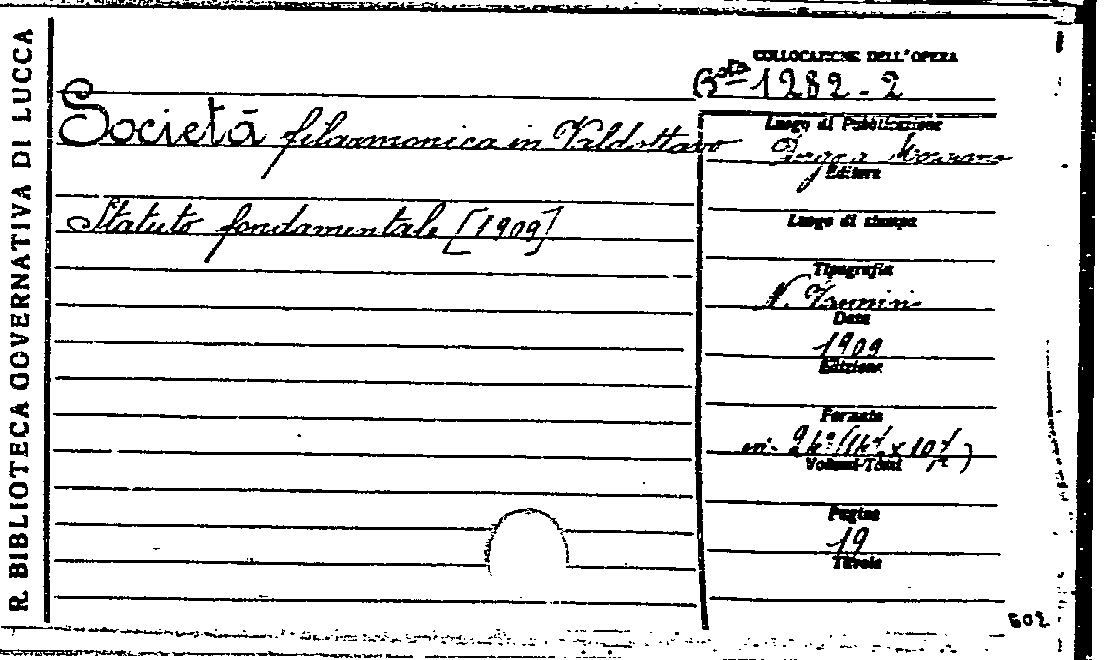 R. BIBLIOTECA GOVERNATIVA DI LUCCA
COLLOCAZIONE DELL'OPERA
Bta 1282-2
Società filarmonica in Valdottavo
Luogo di Pubblicazione
Borgo a Mozzano
Editore
Statuto fondamentale [1909]
Luogo di stampa
Tipografia
N. Zannini
Data
1909
Edizione
Formato
in- 24º
Volumi-Tomi
Pagine
19
Tavole
602